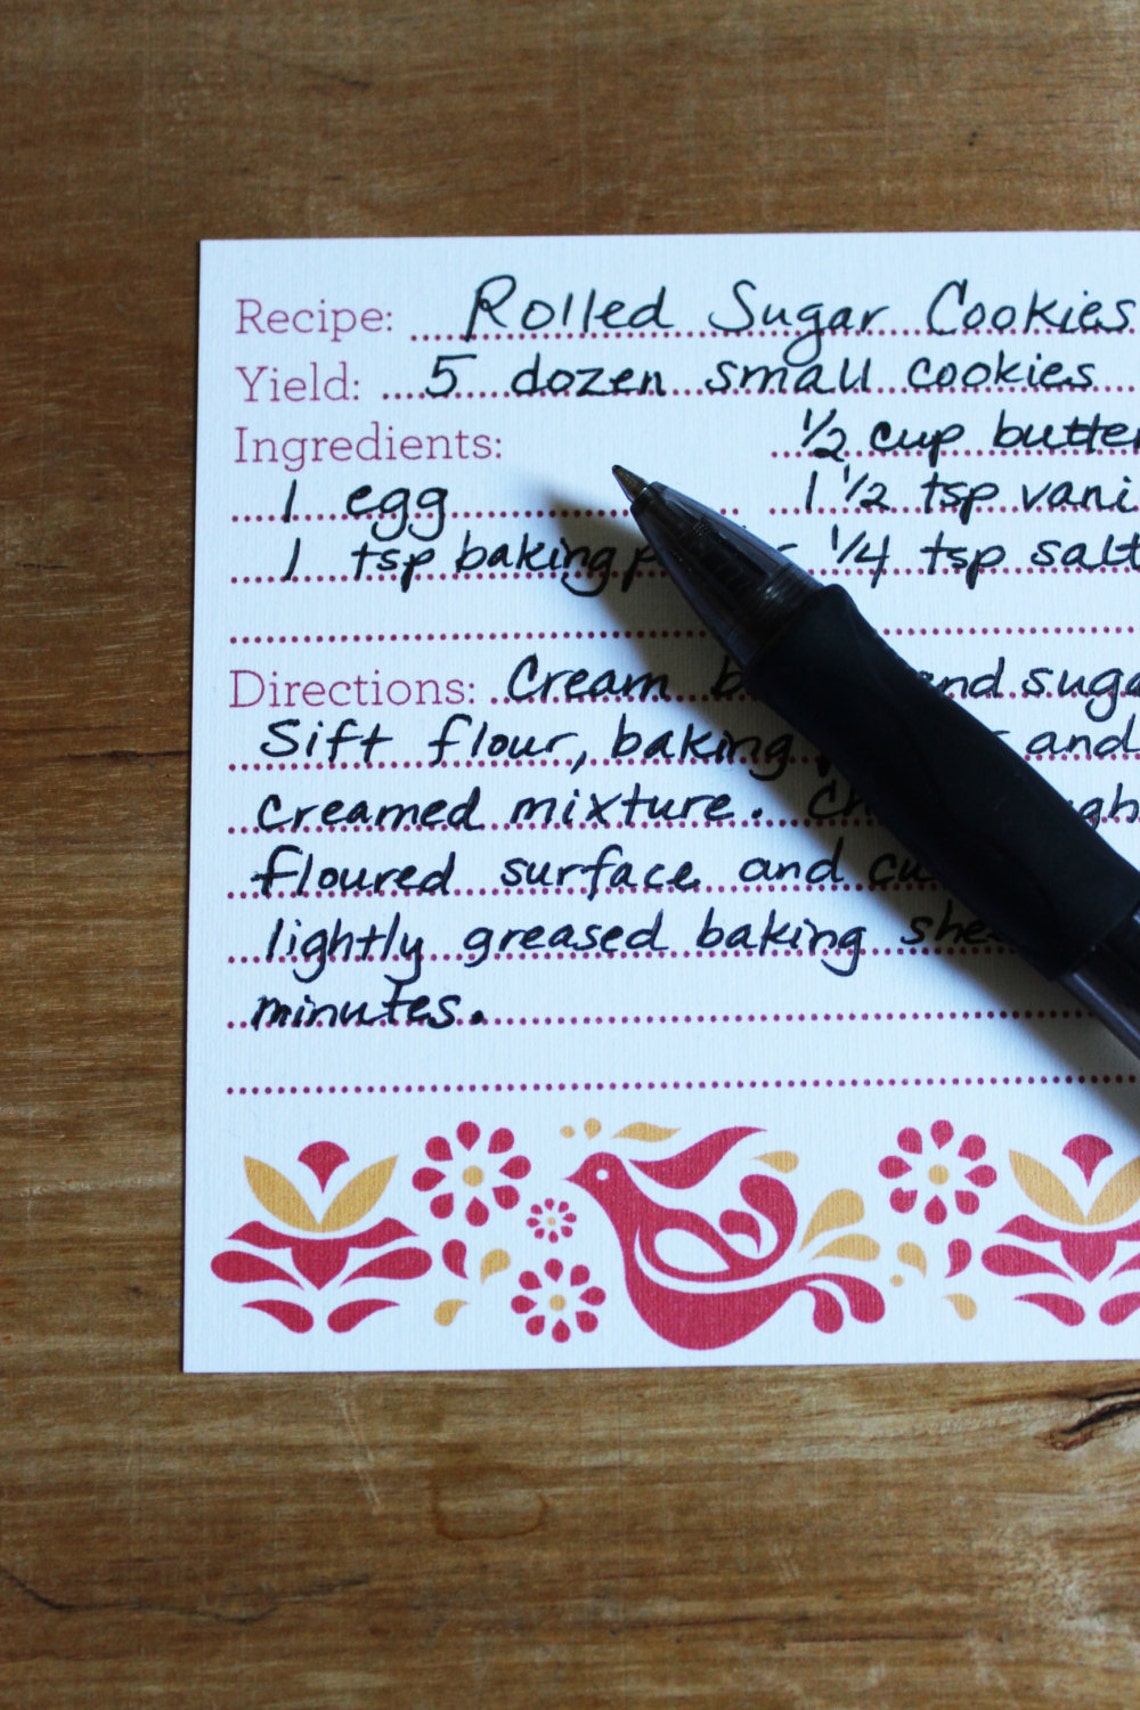 Recipe: Rolled Sugar Cookies
Yield: 5 dozen small cookies
Ingredients: 1/2 cup butter
1 egg 1 1/2 tsp
1 tsp baking 1/4 tsp salt
Directions: Cream and
Sift flour, baking and
creamed mixture.
floured surface and
lightly greased baking
minutes.